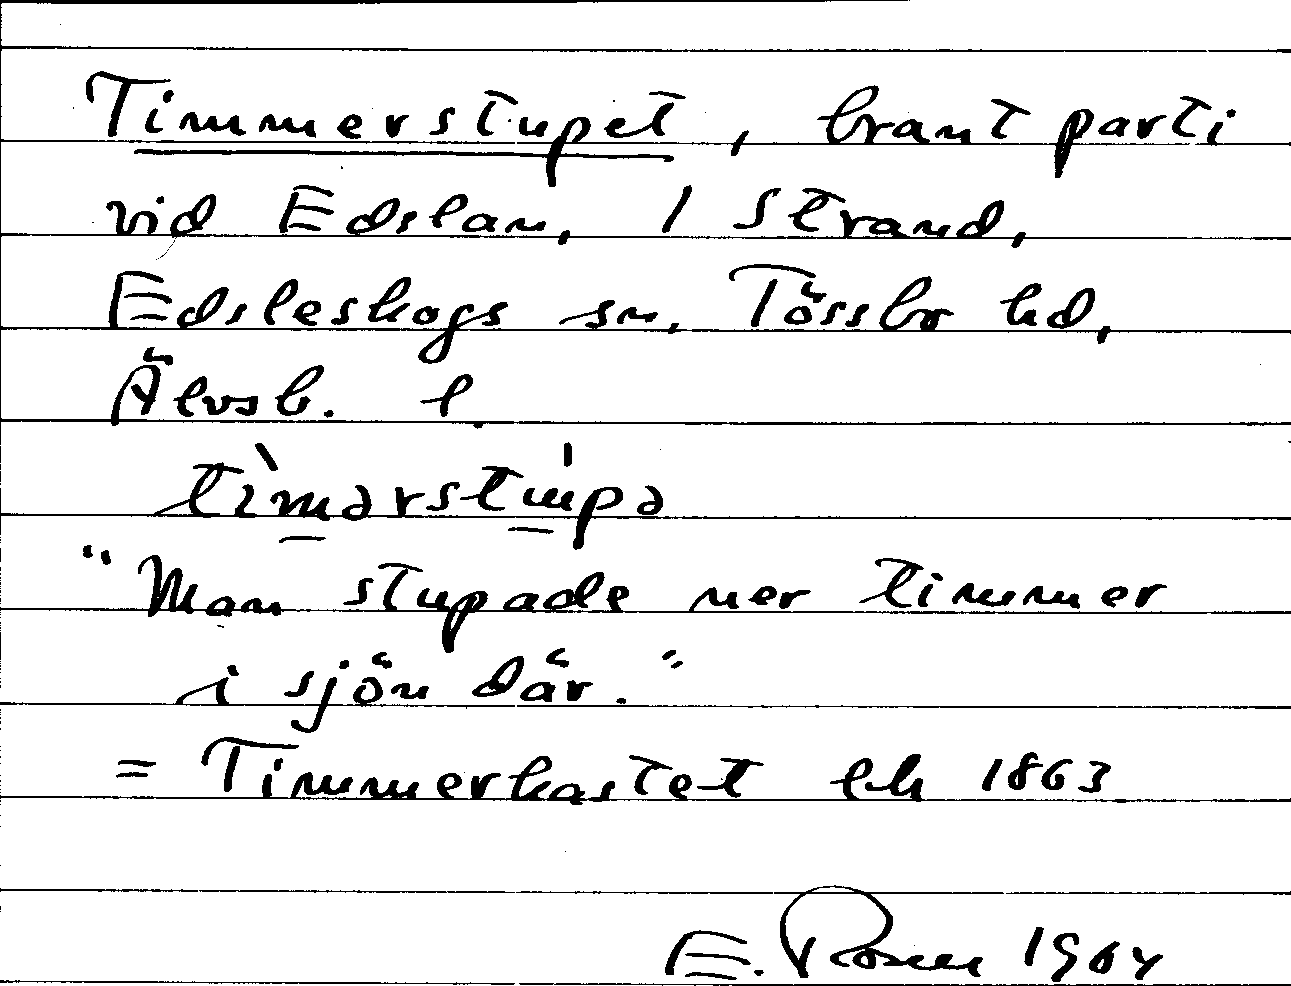 Timmerstupet, brant parti
vid Edslan, 1 Strand,
Edsleskogs sn, Tössbo hd,
Älvsb. l.
tìmərstu̍pə
"Man stupade ner timmer
i sjön där."
= Timmerkastet ek 1863
E. Rosen 1964